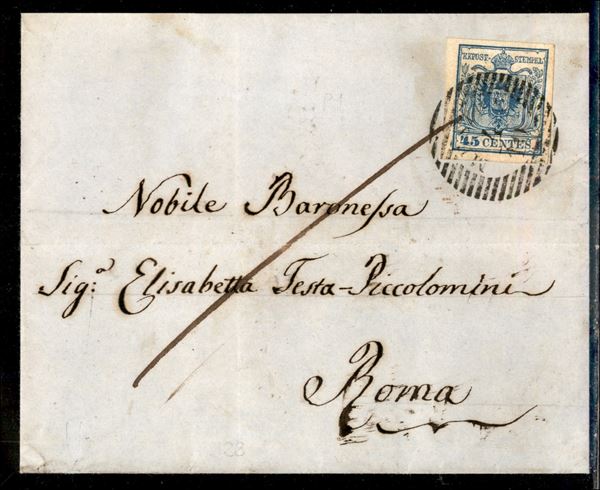 KKPOST-STEMPEL
45 CENTES
Nobile Baronessa
Sig.ª Elisabetta Testa-Piccolomini
Roma